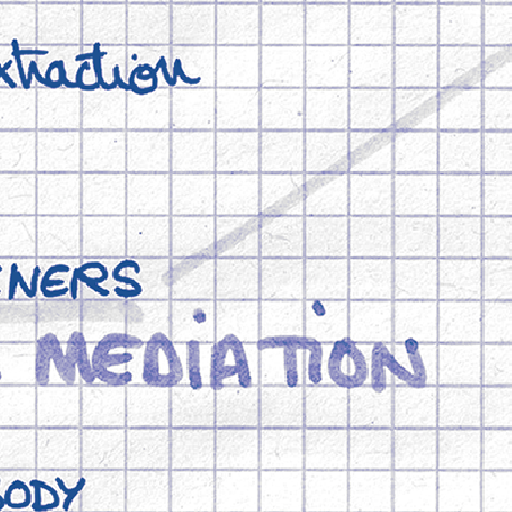 xtraction
NERS
MEDIATION
BODY